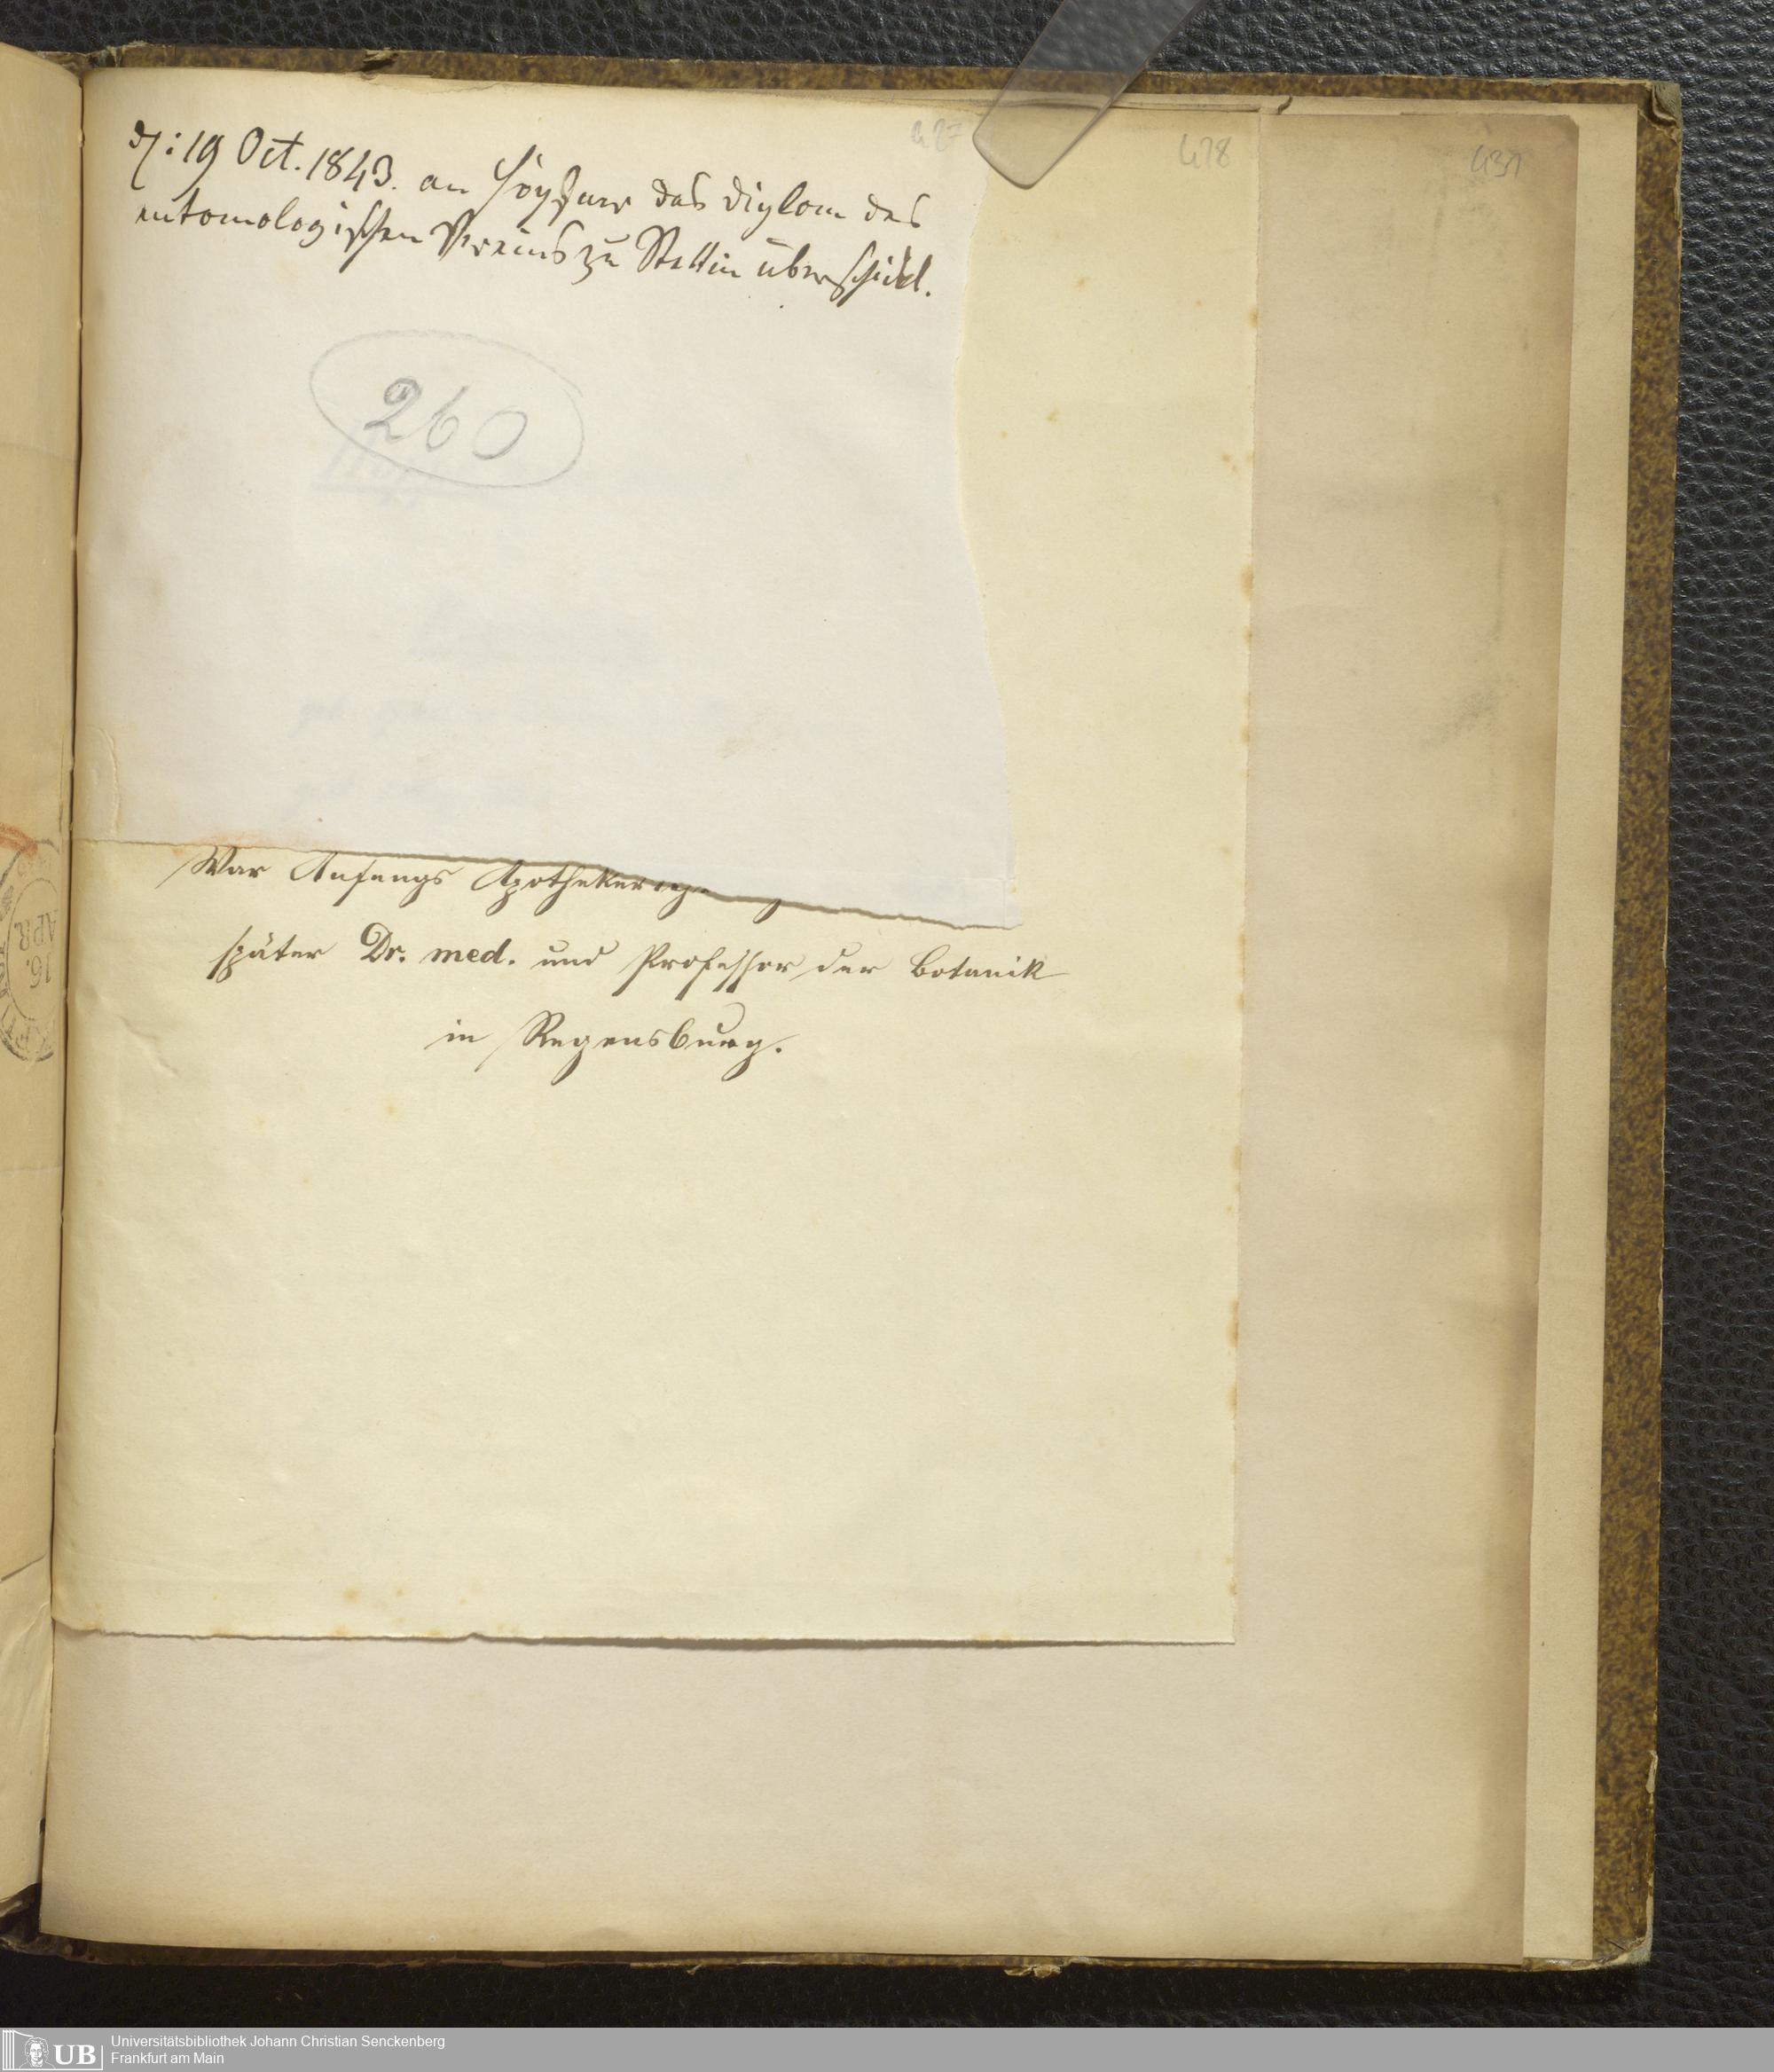 d: 19 Oct. 1843. an das Diplom des
entomologischen Vereins zu Stettin überschickt.
427
428
431
260
War Anfangs Apotheker
später Dr. med. und Professor der Botanik
in Regensburg.
16.
APR.
UB Universitätsbibliothek Johann Christian Senckenberg
Frankfurt am Main